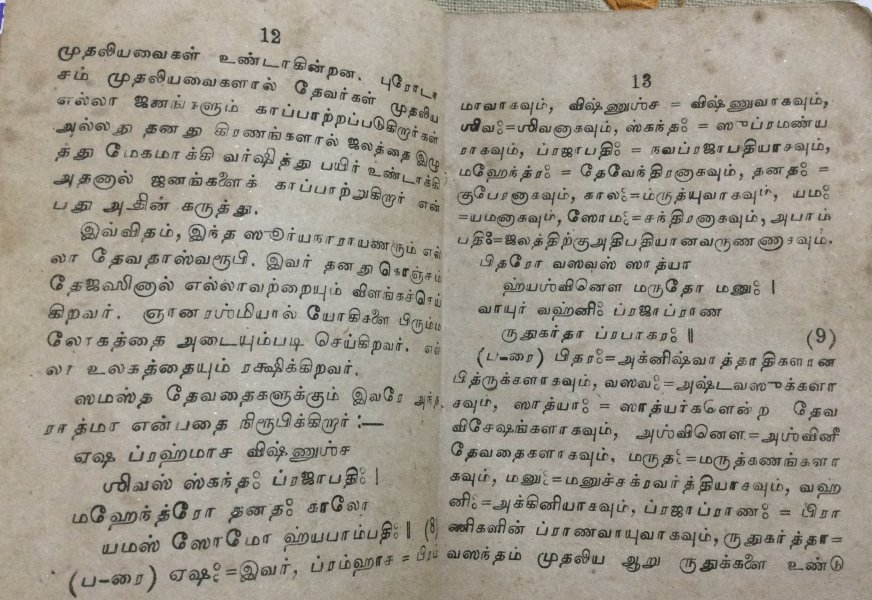 12
முதலியவைகள் உண்டாகின்றன. புரோடா
சம் முதலியவைகளால் தேவர்கள் முதலிய
எல்லா ஜனங்களும் காப்பாற்றப்படுகிறார்கள்
அல்லது தனது கிரணங்களால் ஜலத்தை இழு
த்து மேகமாக்கி வர்ஷித்து பயிர் உண்டாக்கி
அதனால் ஜனங்களைக் காப்பாற்றுகிறார் என்
பது அதின் கருத்து.
இவ்விதம், இந்த ஸூர்யநாராயணரும் எல்
லா தேவதாஸ்வரூபி. இவர் தனது கொஞ்சம்
தேஜஸினால் எல்லாவற்றையும் விளங்கச்செய்
கிறவர். ஞானரஶ்மியால் யோகிகளை பிரும்ம
லோகத்தை அடையும்படி செய்கிறவர். எல்
லா உலகத்தையும் ரக்ஷிக்கிறவர்.
ஸமஸ்த தேவதைகளுக்கும் இவரே அந்த
ராத்மா என்பதை நிரூபிக்கிறார்:—
ஏஷ ப்ரஹ்மாச விஷ்ணுஶ்ச
ஶிவஸ் ஸ்கந்தஃ ப்ரஜாபதிஃ |
மஹேந்த்ரோ தனதஃ காலோ
யமஸ் ஸோமோ ஹ்யபாம்பதிஃ || (8)
(ப-ரை) ஏஷஃ=இவர், ப்ரம்ஹாச = பிரம்
13
மாவாகவும், விஷ்ணுஶ்ச = விஷ்ணுவாகவும்,
ஶிவஃ=ஶிவனாகவும், ஸ்கந்தஃ = ஸுப்ரமண்ய
ராகவும், ப்ரஜாபதிஃ = நவப்ரஜாபதியாகவும்,
மஹேந்த்ரஃ = தேவேந்திரனாகவும், தனதஃ =
குபேரனாகவும், காலஃ=ம்ருத்யுவாகவும், யமஃ
=யமனாகவும், ஸோமஃ=சந்திரனாகவும், அபாம்
பதிஃ=ஜலத்திற்குஅதிபதியானவருணணாகவும்.
பிதரோ வஸவஸ் ஸாத்யா
ஹ்யஶ்வினௌ மருதோ மனுஃ |
வாயுர் வஹ்னிஃ ப்ரஜாப்ராண
ருதுகர்தா ப்ரபாகரஃ || (9)
(ப-ரை) பிதரஃ=அக்னிஷ்வாத்தாதிகளான
பித்ருக்களாகவும், வஸவஃ=அஷ்டவஸுக்களா
கவும், ஸாத்யாஃ = ஸாத்யர்களென்ற தேவ
விசேஷங்களாகவும், அஶ்வினௌ=அஶ்வினீ
தேவதைகளாகவும், மருதஃ=மருத்கணங்களா
கவும், மனுஃ=மனுச்சக்ரவர்த்தியாகவும், வஹ்
னிஃ=அக்கினியாகவும், ப்ரஜாப்ராணஃ = பிரா
ணிகளின் ப்ராணவாயுவாகவும், ருதுகர்த்தா=
வஸந்தம் முதலிய ஆறு ருதுக்களை உண்டு